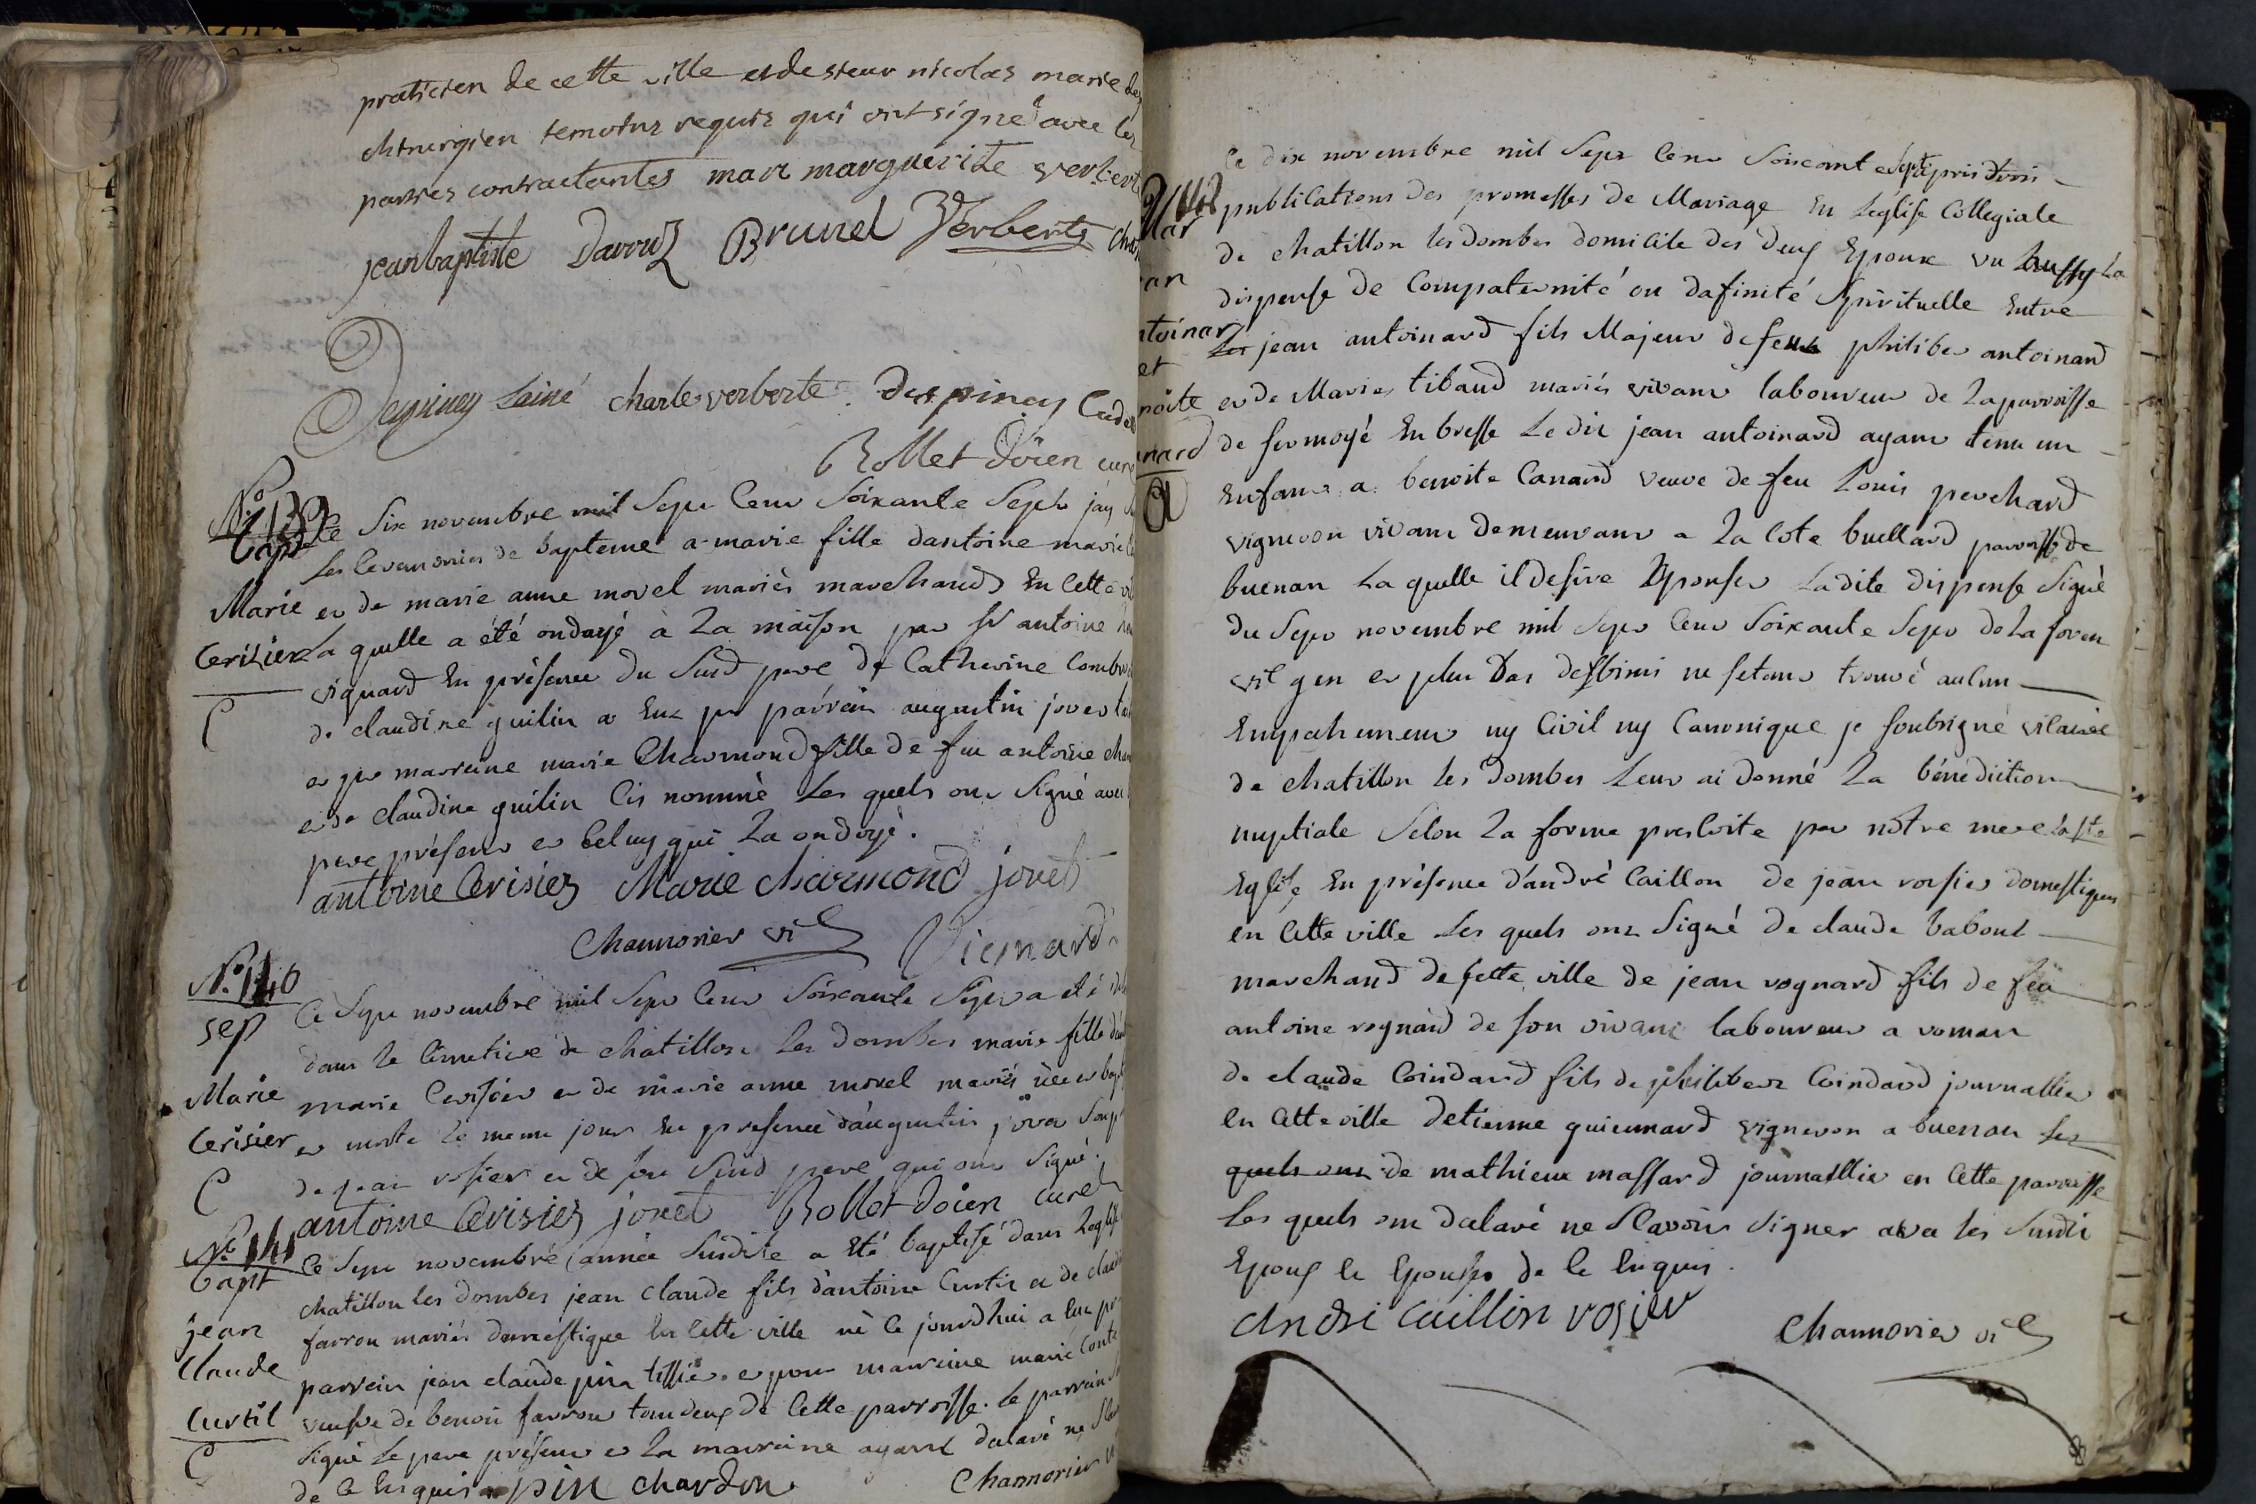 praticien de cette ville et de sieur nicolas marie des
chirurgien temoins requis qui ont signé avec les
parties contractantes marr marguerite verberte
jean baptiste Darruz Brunel Verberte
Despiney Lainé charle verberte Despiney Cadet
Rollet Doïen curé
No. 139
Bapt
Marie
Cerisier
C
Le Six novembre mil Sept Cent Soixante Sept jay
Les Ceremonies de bapteme a marie fille dantoine marie
et de marie anne morel mariés marchands En Cette
La quelle a été ondoyé à La maison par Sr antoine
vignard En présence du Susd pere de Catherine
de claudine guilin a Eux pr parrain augustin jovet
et pr marraine marie Charmond fille de feu antoine
et de claudine guilin Cis nommé Les quels ont Signé avec
pere présent et Celuy qui La ondoyé.
antoine Cerisiez Marie charmond jovet
Channorier vi Vignard
No. 140
sep
Marie
Cerisier
C
Ce Sept novembre mil Sept Cent Soixante Sept a été
dans le Cimetiere de chatillon Les Dombes marie fille
marie Cerisier et de marie anne morel mariés née et
et morte le meme jour En presence d'augustin jovet
de jean rosier et de son Susd pere qui ont Signé.
antoine Cerisiez jovet Rollet Doïen curé
No. 141
Bapt
jean
Claude
Curtil
C
Ce Sept novembre année Susdite a Eté baptisé dans Leglise
chatillon les Dombes jean claude fils d'antoine Curtil et de
farrou mariés domestique En Cette ville né Ce jourdhui a Eu pr
parrein jean claude pin tissier et pour marreine marie
veufve de benoit farrou tous deux de Cette parroisse. le parrain
Signé Le pere présent et La marraine ayant declaré ne
de Ce Enquis pin chardon Channorier
148
Mar
an
ntoinar
et
noite
anard
Ce dix novembre mil Sept Cent Soixante et Sept apris trois
publications des promesses de Mariage En Leglise Collegiale
de chatillon les dombes domicile des deux Epoux vu aussy La
dispense de Compaternité ou dafinité Spirituelle Entre
Les jean antoinard fils Majeur de feux philiber antoinard
et de Marie tibaud mariés vivant laboureur de La parroisse
de sermoyé En bresse Le dit jean antoinard ayant tenu un
Enfant a benoite Canard veuve de feu Louis perchard
vigneron vivant demeurant a La Cote buellard parroisse de
buenan La quelle il desire Epouser La dite dispense Signé
du Sept novembre mil Sept Cent Soixante Sept de La foren
vic gen et plus bas desbinis ne setant trouvé aucun
Empechement ny Civil ny Canonique je soubsigné vicaire
de chatillon les Dombes Leur ai donné La bénédiction
nuptiale Selon La forme prescrite par nôtre mere La Ste
Eglise En présence d'andré Caillon de jean rosier domestiques
en Cette ville Les quels ont Signé de claude baboul
marchand de Cette ville de jean rognard fils de feu
antoine rognard de son vivant laboureur a roman
de claude Coindard fils de philibert Coindard journallier
en Cette ville detienne guienard vigneron a buenan Les
quels ont de mathieux massard journallier en Cette parroisse
Les quels ont declaré ne Scavoir Signer avec les Susdi
Epoux le Epouse de Ce Enquis.
André Caillon rosier Channorier vi